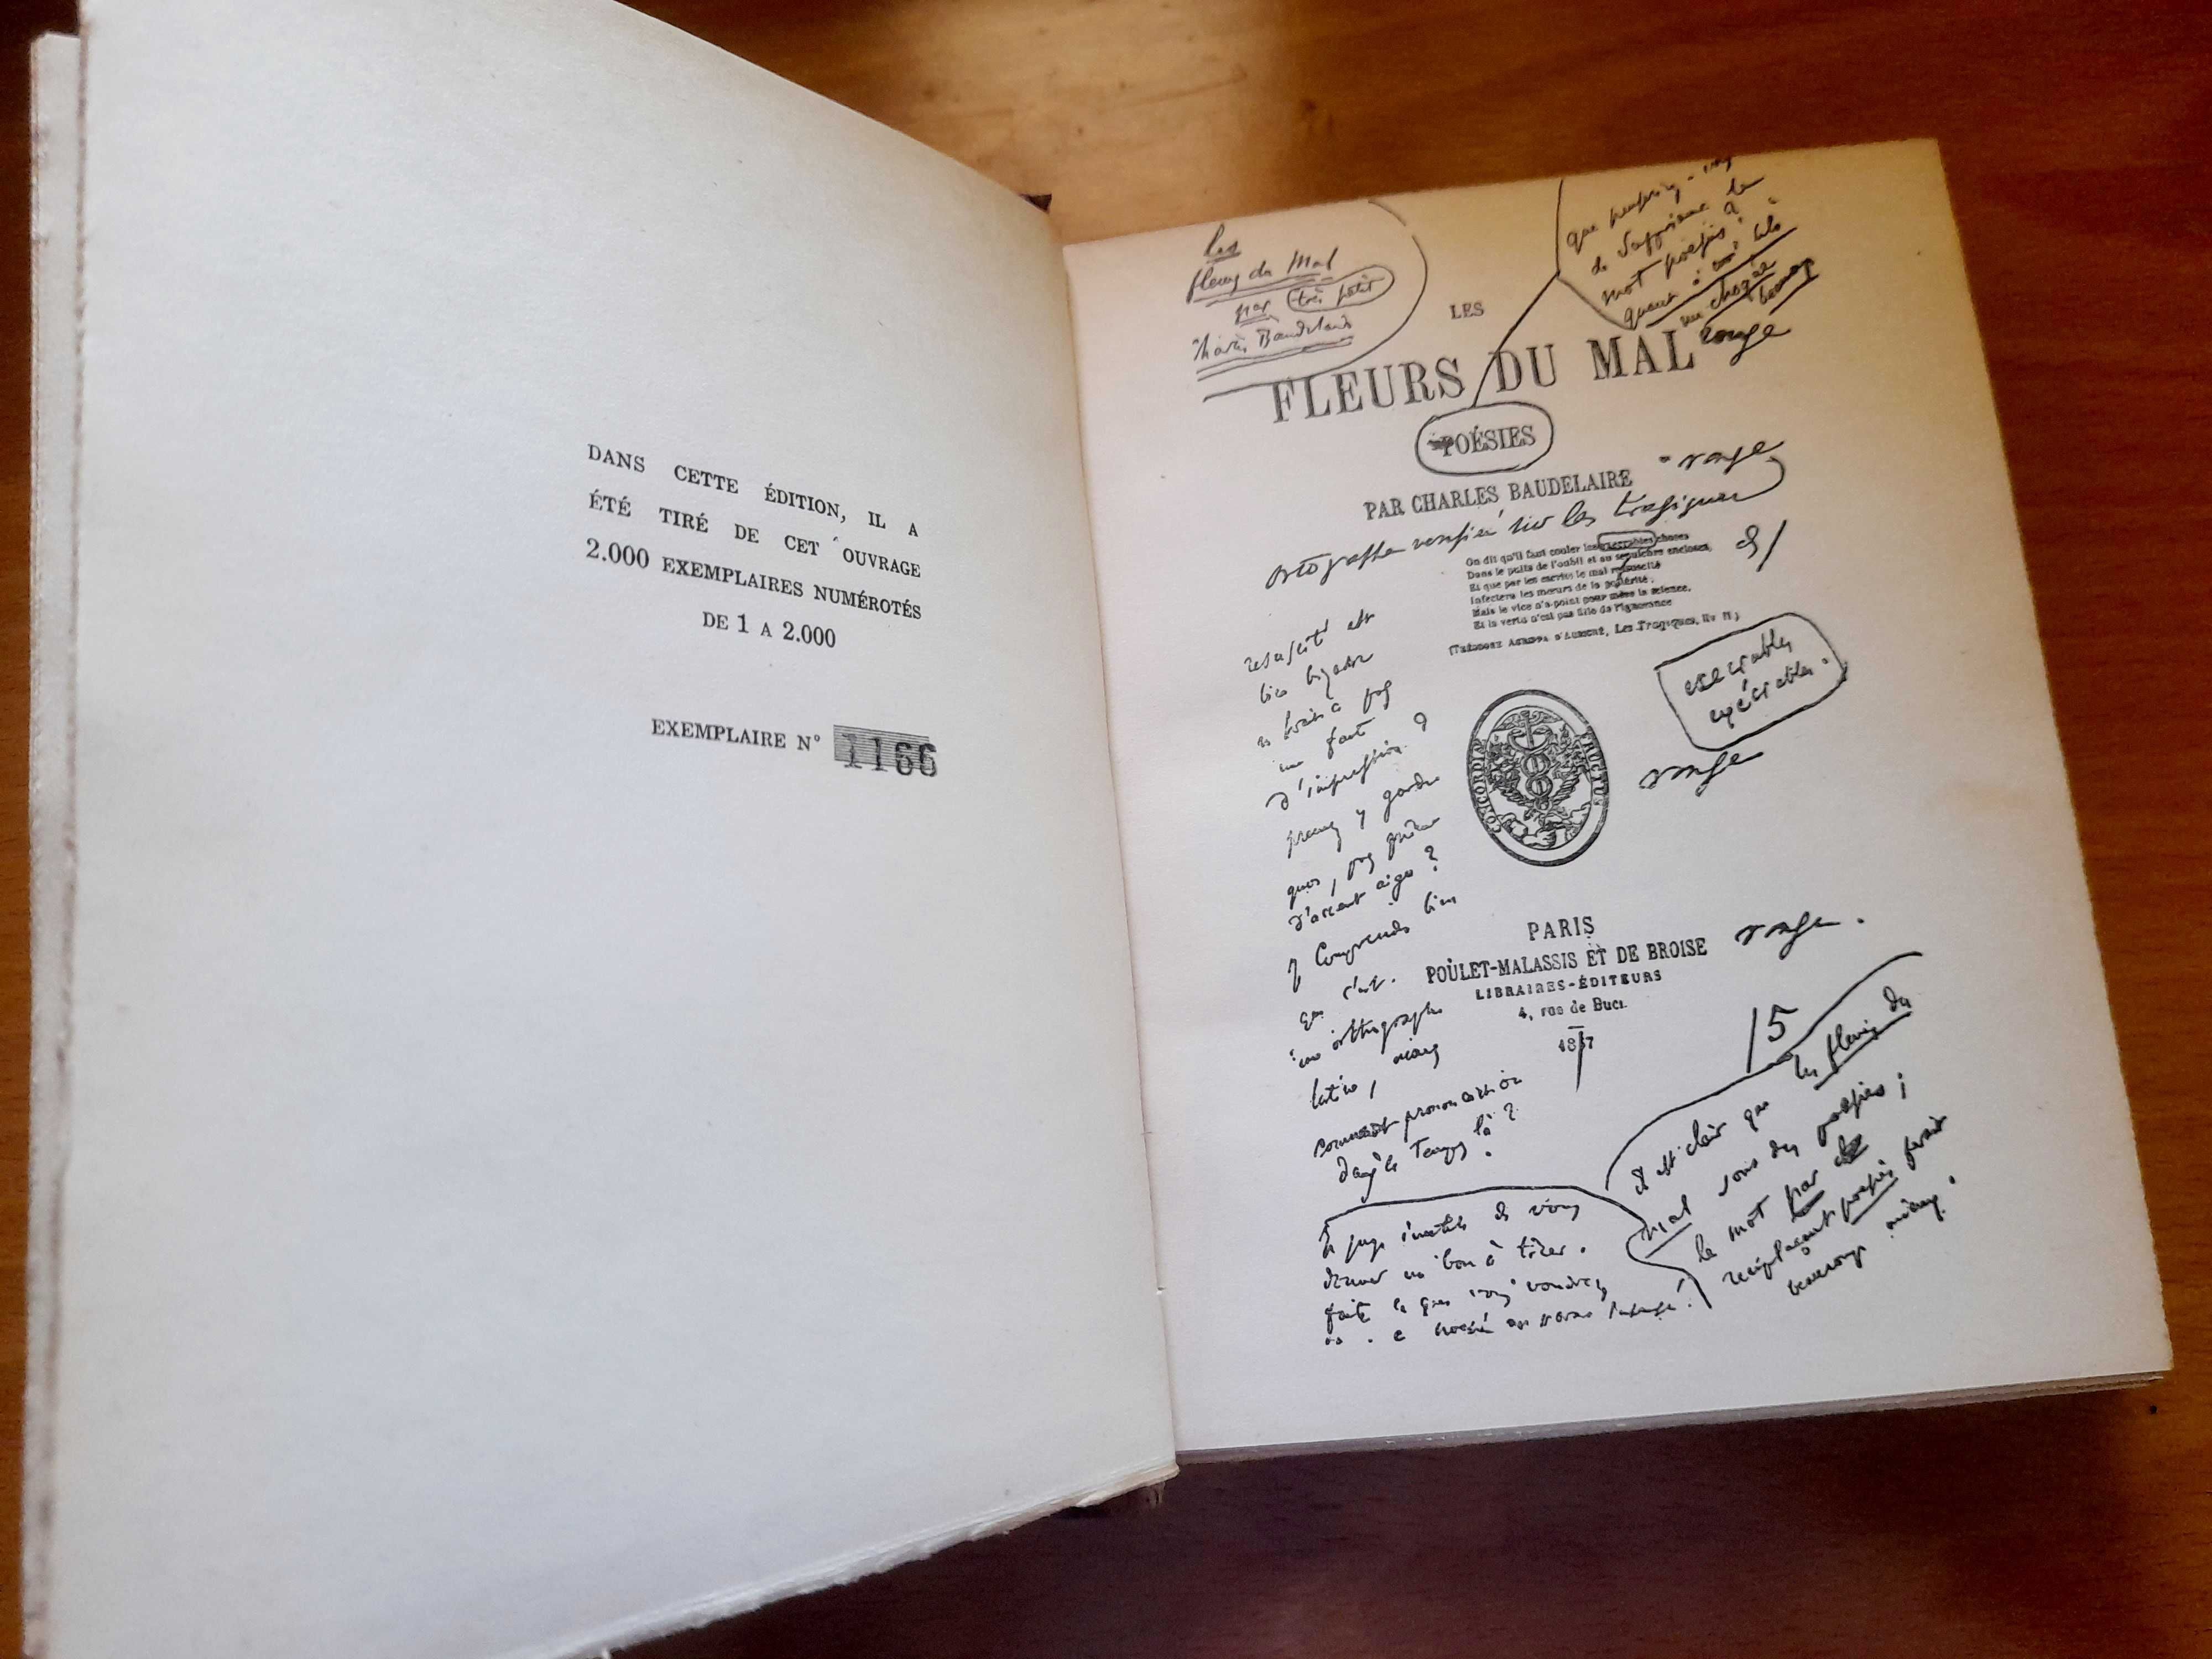 DANS CETTE ÉDITION, IL A
ÉTÉ TIRÉ DE CET OUVRAGE
2.000 EXEMPLAIRES NUMÉROTÉS
DE 1 A 2.000
EXEMPLAIRE N° 1166
Les
fleurs du Mal
par très petit
Charles Baudelaire
de supprimer le
mot poësies ?
quant à moi cela
me choque
beaucoup
rouge
LES
FLEURS DU MAL
POÉSIES
rouge
PAR CHARLES BAUDELAIRE
ortographe verifiée sur les tragiques
On dit qu'il faut couler les execrables choses
Dans le puits de l'oubli et au sepulchre encloses,
Et que par les escrits le mal resuscité
Infectera les mœurs de la postérité;
Mais le vice n'a point pour mère la science,
Et la vertu n'est pas fille de l'ignorance
(THÉODORE AGRIPPA D'AUBIGNÉ, LES TRAGIQUES, liv II)
resuscité est
bien bizarre
une faute
d'impression ?
prenez y garde
quoi, pas
d'accent aigu ?
je comprends bien
que c'est
une orthographe
latine, mais
comment prononciation
dans ce temps là ?
execrables
exécrables.
rouge
CONCORDIÆ FRUCTUS
PARIS
rouge.
POULET-MALASSIS ET DE BROISE
LIBRAIRES-ÉDITEURS
4, rue de Buci.
1857
/5
il est clair que les fleurs du
Mal sont des poësies;
le mot par
remplaçant poësies ferait
beaucoup mieux.
Je juge inutile de vous
donner un bon à tirer.
faites ce que vous voudrez